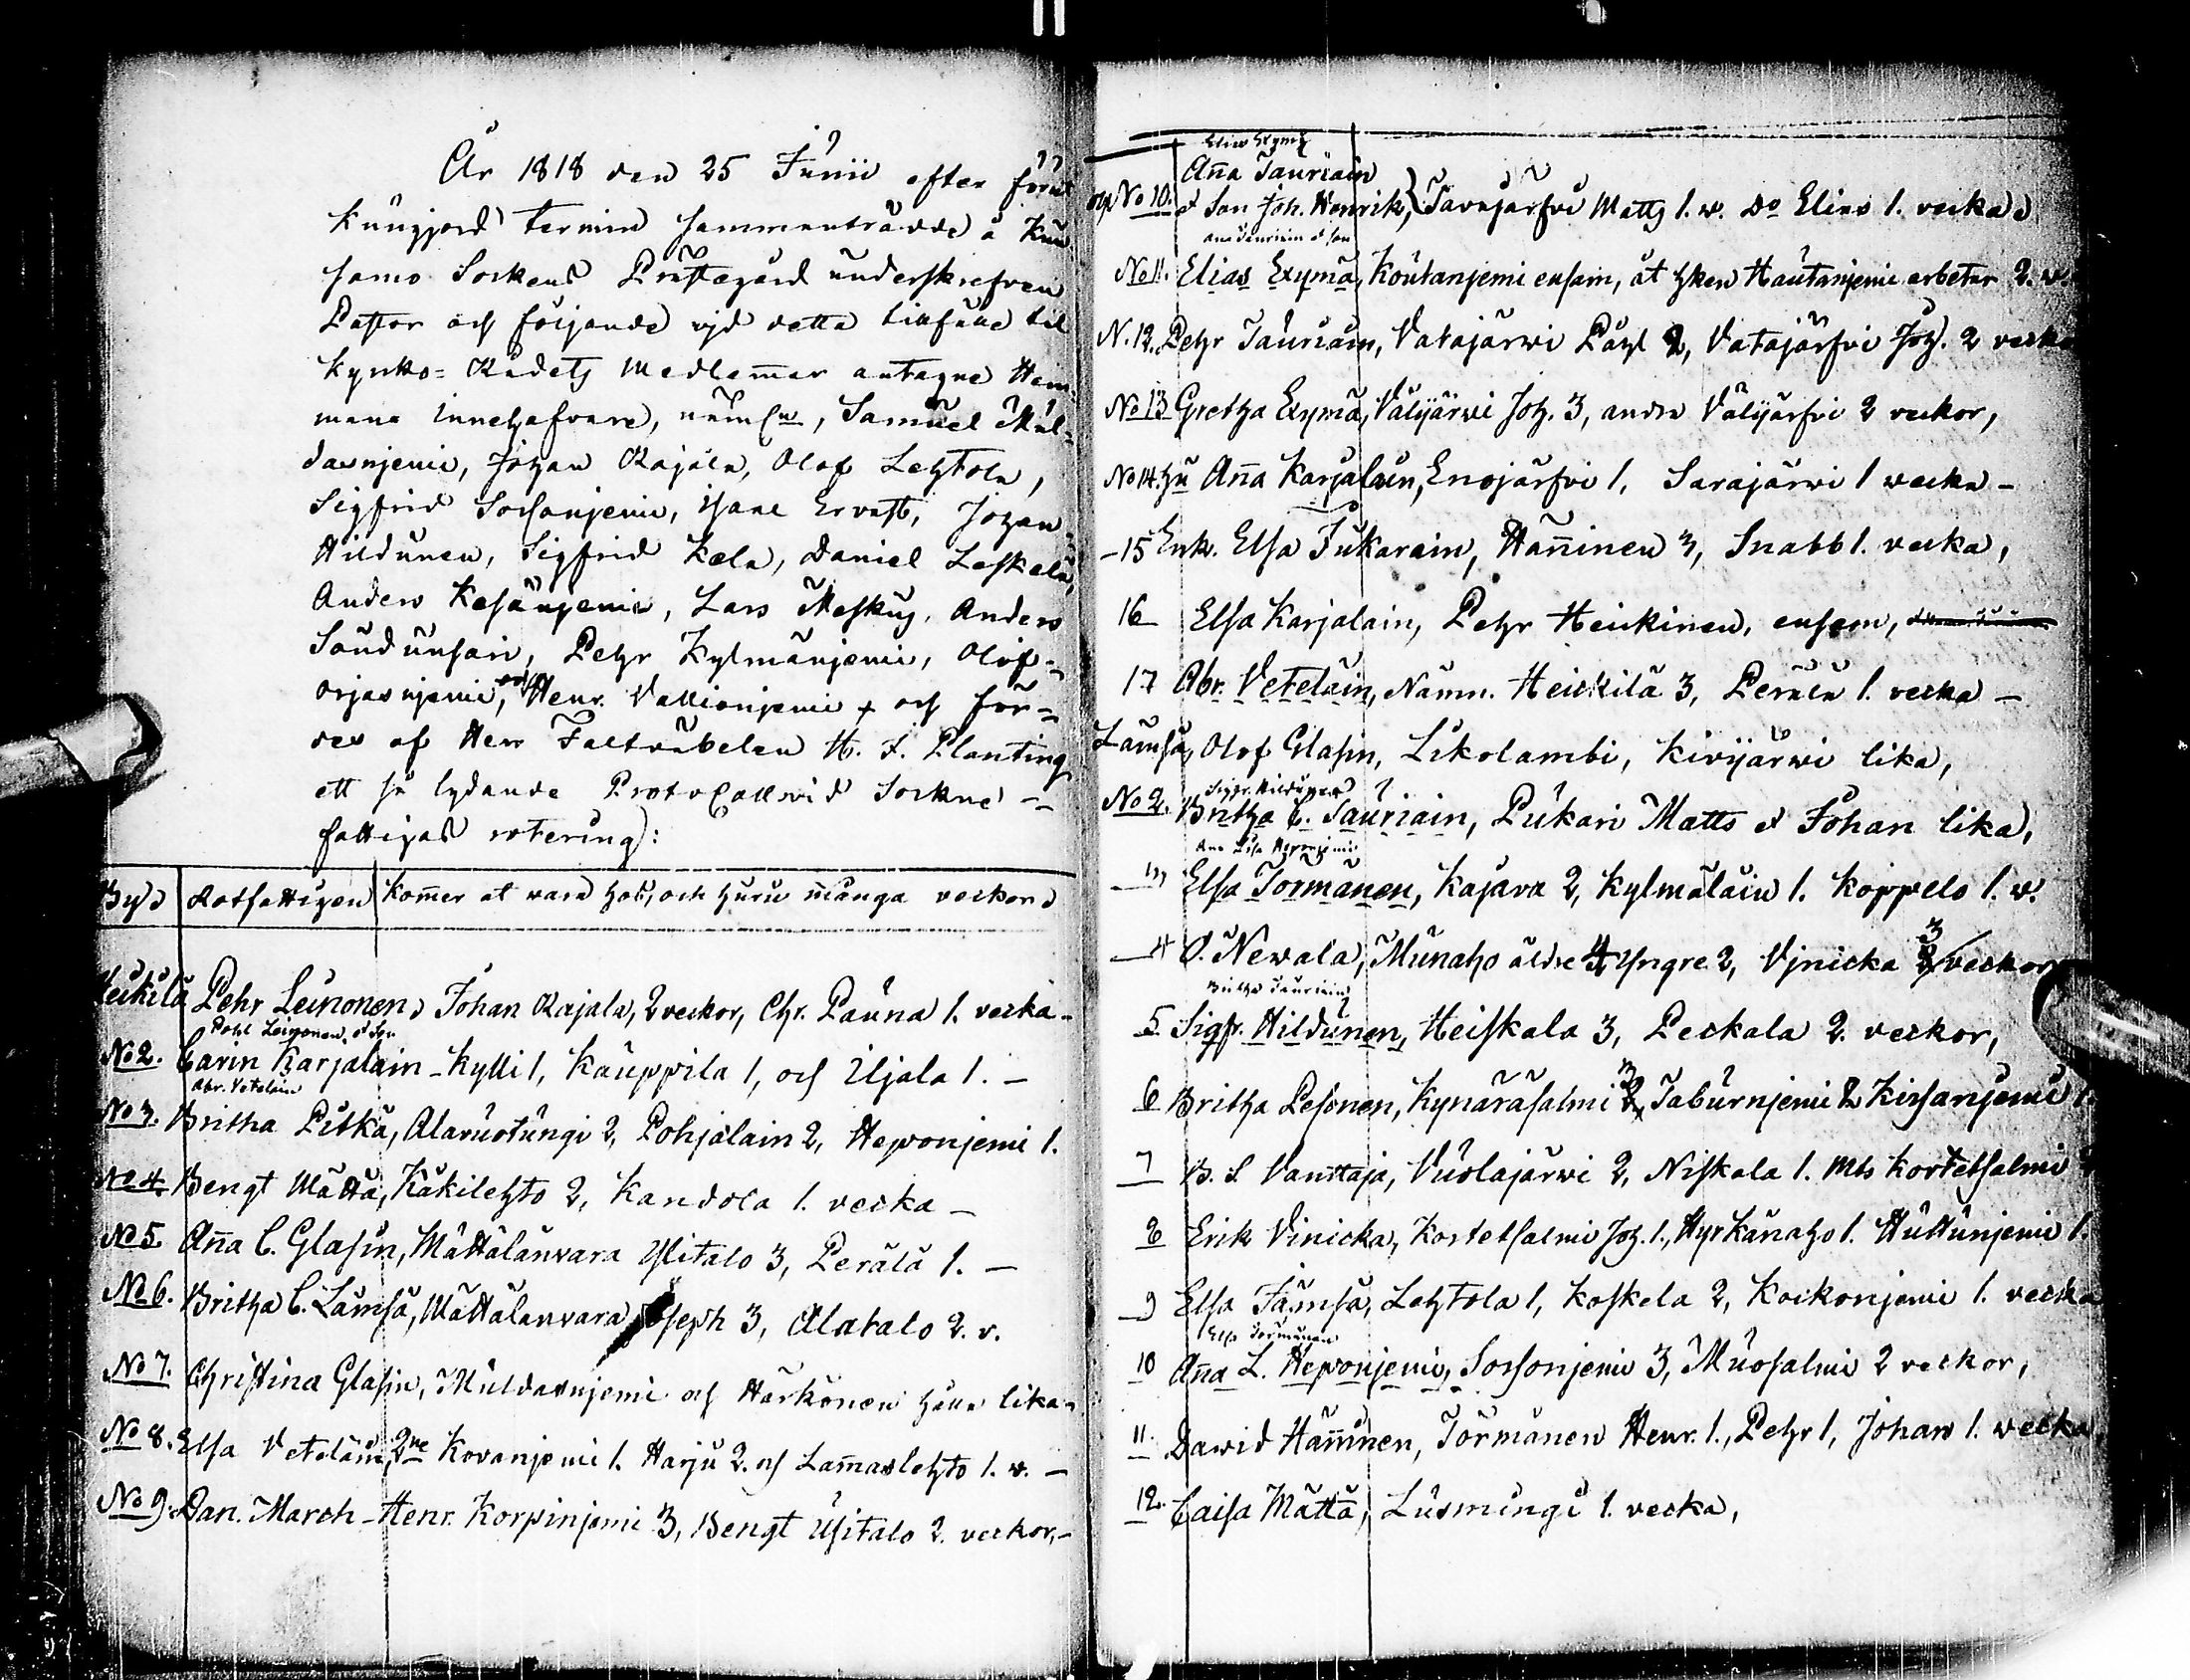 År 1818 den 25 Junii efter förut
kungjord termin sammanträdde å Kuu-
samo Sockens Prästegård underskrefven
Pastor och följande vid detta tillfälle til
Kyrko-Rådets Medlemmar antagne Hem-
mans innehafvare, näml:n, Samuel Mul-
dasnjemi, Johan Rajala, Olof Lehtola,
Sigfrid Sossonjemi, Isaac Ervasti, Johan
Hildunen, Sigfrid Kæla, Daniel Leskelä,
Anders Kesänjemi, Lars Meskus, Anders
Soudunsari, Pehr Kylmänjemi, Olof
Orjasnjemi, och Henr. Vallionjemi och för-
des af Herr Faltväbelen H. J. Planting
ett så lydande Protocoll vid Sockne-
fattigas rotering:
By Rotfattigen kommer at vara hos, och huru många veckor
Heikilä Pehr Leinonen, Johan Rajala, 2 veckor, Chr. Pauna 1. vecka -
Pohl Leinonen & Son
No 2. Carin Karjalain - Kylli 1, Kauppila 1, och Iljala 1. -
Abr. Vetelain
No 3. Britha Pitkä, Alaruotungi 2, Pohjalain 2, Heponjemi 1.
No 4. Bengt Mättä, Käkilehto 2, Kandola 1. vecka -
No 5. Anna C. Glasin, Mättälänvara Ylitalo 3, Perälä 1. -
No 6. Britha C. Lämsä, Mättälänvara Joseph 3, Alatalo 2. v.
No 7. Christina Glasin, Muldasnjemi och Härkönen håller lika -
No 8. Elsa Veteläin, 2ne Kovanjemi 1. Harju 2. och Lammaslehto 1. v. -
No 9. Dan. March - Henr. Korpinjemi 3, Bengt Usitalo 2. veckor, -
Elias Exymä
Anna Tauriain
No 10. & Son Joh. Henrik, } Tavajärfvi Matts 1. v. Do Elias 1. vecka
Ana Tauriain & son
No 11. Elias Exymä, Koutanjemi ensam, åt hken Hautanjemi arbetar 2. v.
N. 12. Pehr Tauriain, Vatajärwi Påhl 2, Vatajärfvi Joh. 2 veckor
No 13 Gretha Exymä, Välijärwi Joh. 3, andra Välijärfvi 2 veckor,
No 14. hu Anna Karjalain, Enojärfvi 1, Sarajärwi 1 vecka -
- 15 Enk. Elsa Jukarain, Hänninen 3, Snabb 1. vecka,
16 Elsa Karjalain, Pehr Heickinen, ensam,
17 Abr. Vetelain, Nämn. Heickilä 3, Perälä 1. vecka -
Lämsä, Olof Glasin, Likolambi, Kivijärwi lika,
Sigfr. Hildunen
No 2. Britha C. Tauriain, Pukari Matts & Johan lika,
Ana Lisa Heponjemi
3 Elsa Tormänen, Kajava 2, Kylmäläin 1. Koppelo 1. v.
4 O. Newala, Munaho äldre 4, Yngre 2, Vinicka 3 veckor
Britha Tauriain
5 Sigfr. Hildunen, Heiskala 3, Peckala 2. veckor,
6 Britha Pesonen, Kynäräsalmi 3, Taburnjemi 2 Kirsanjemi 1.
7 B. L. Vanttaja, Vuolajärwi 2, Niskala 1. Mts Kortetsalmi
8 Erik Vinicka, Kortetsalmi Joh. 1., Hyrkänaho 1. Huttunjemi 1.
9 Elsa Jämsä, Lehtola 1, Koskela 2, Kockonjemi 1. vecka
Elsa Tormänen
10 Anna L. Heponjemi, Sossonjemi 3, Muosalmi 2 veckor,
11. Dawid Hänninen, Törmänen Henr. 1., Pehr 1, Johan 1. vecka
12. Caisa Mättä, Lusmingi 1. vecka,